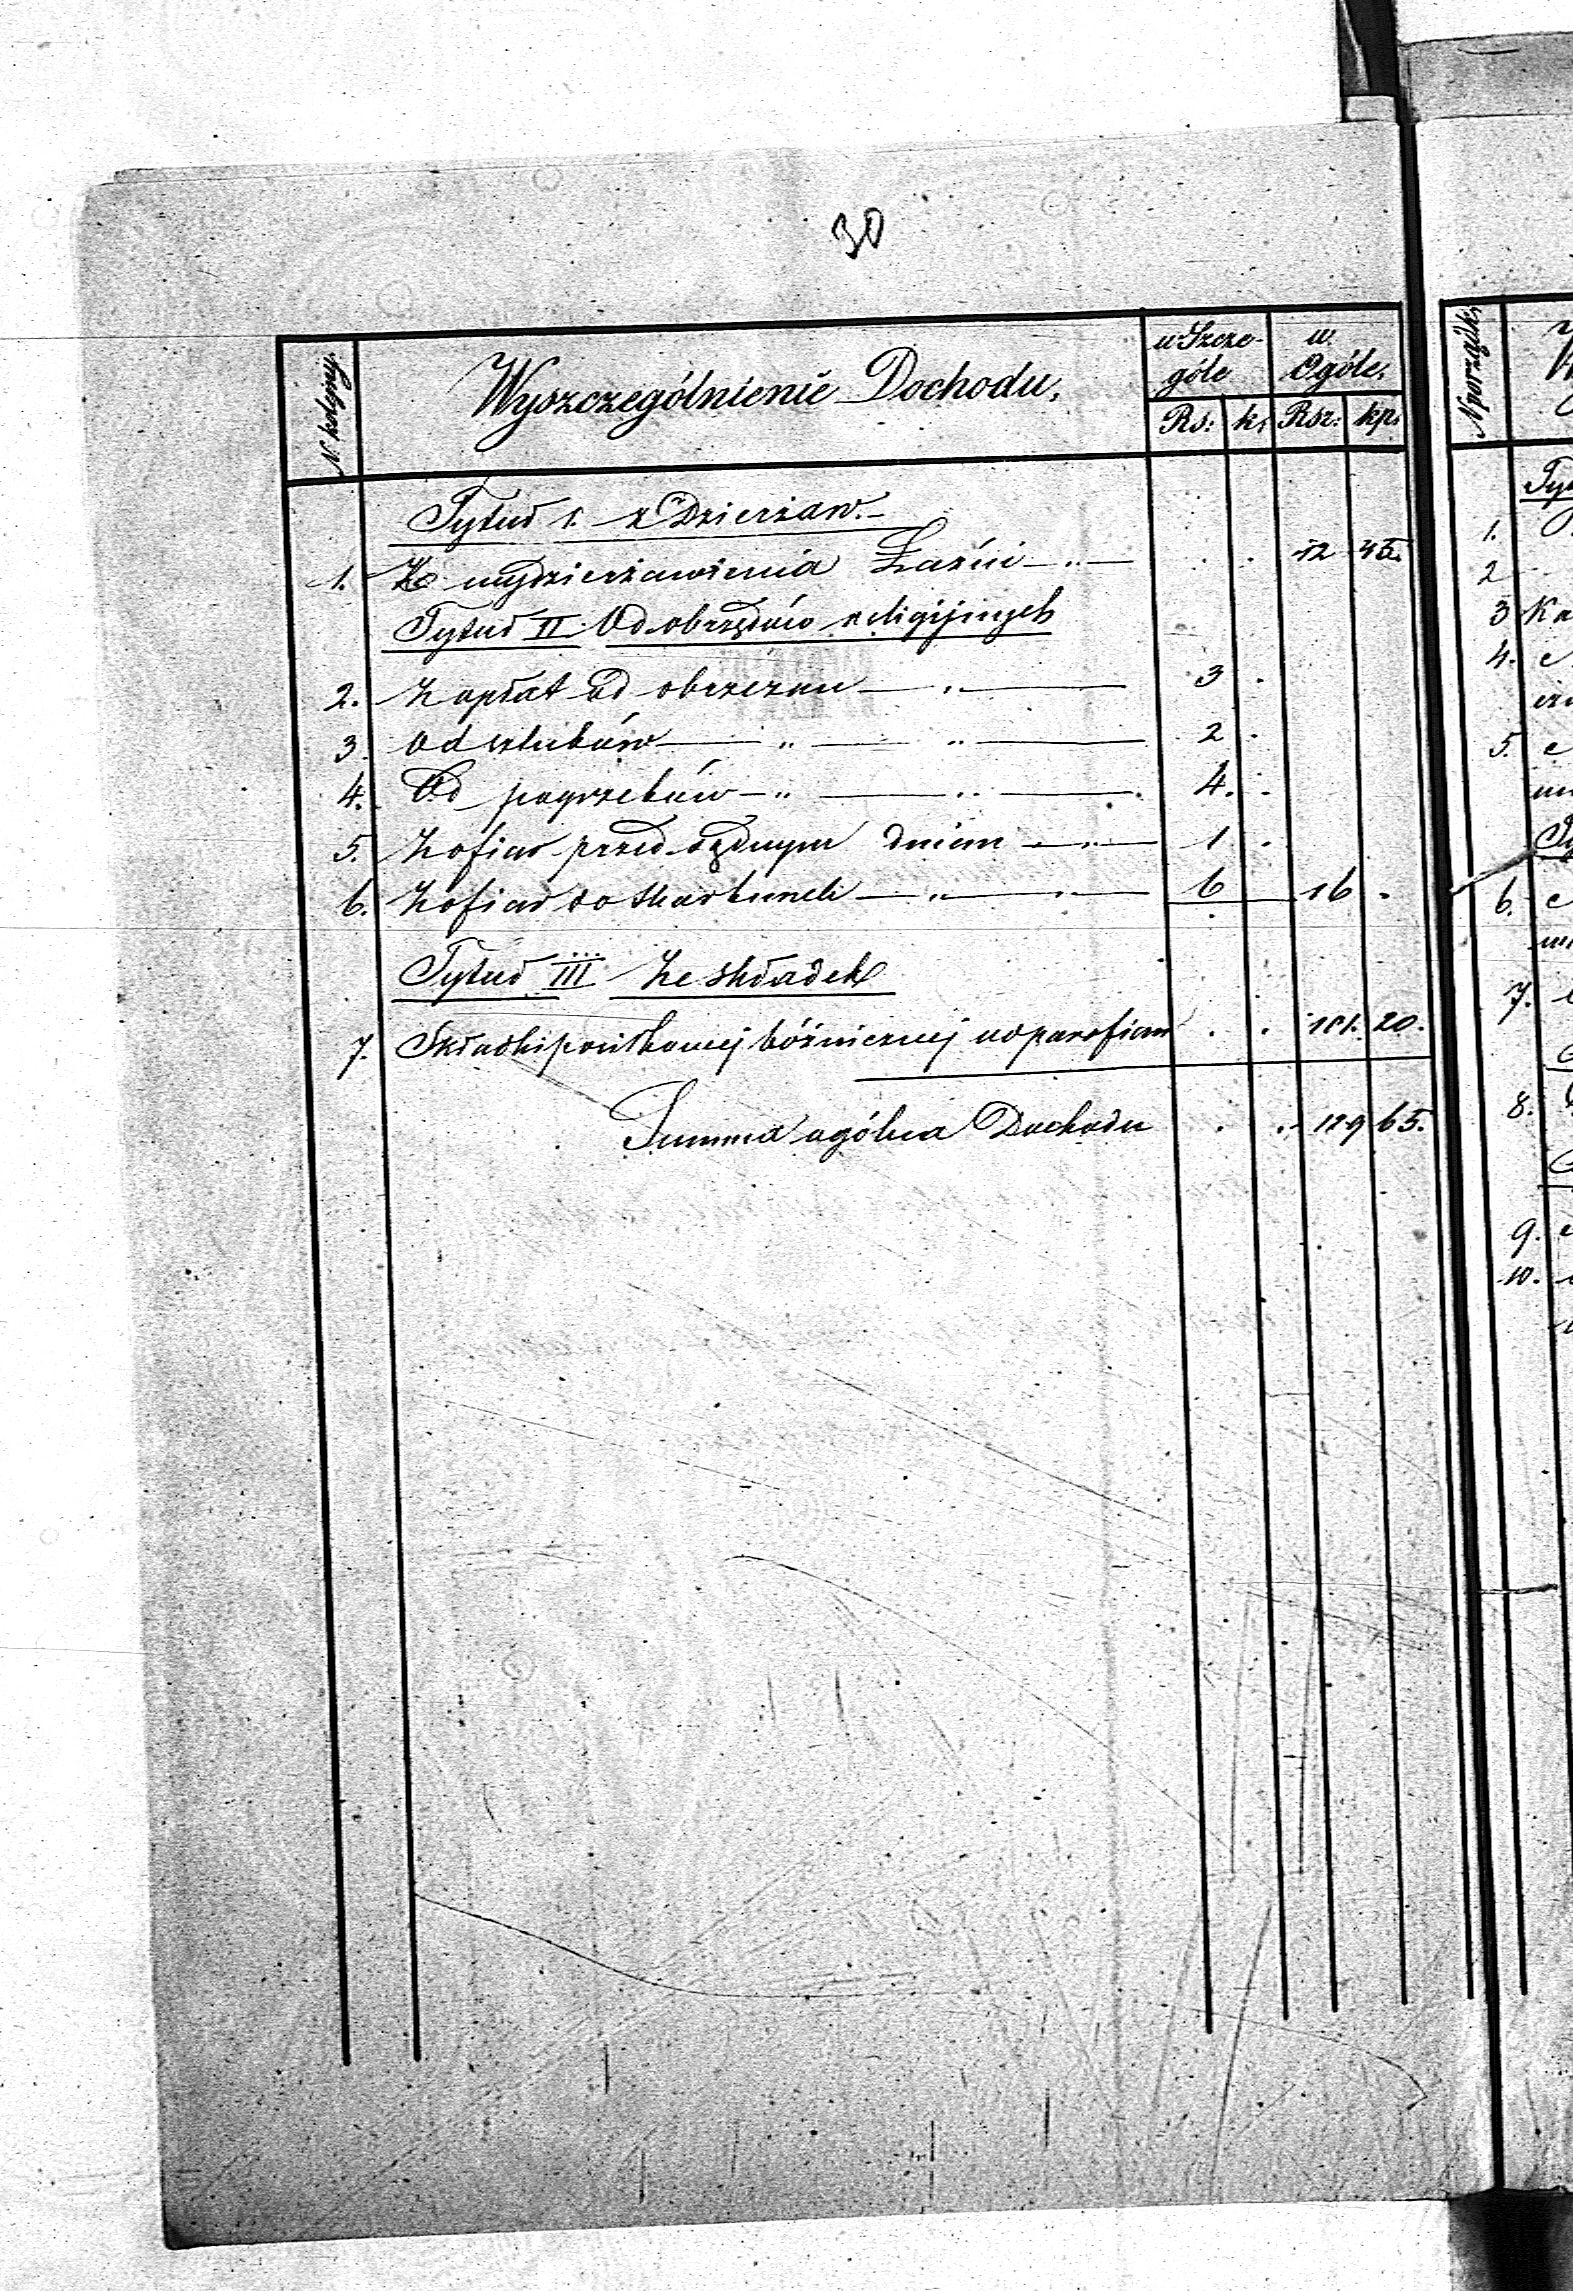 30
N kolejny. Wyszczególnienie Dochodu. w Szcze- w
góle Ogóle.
Rs: k. Rsr: kp.
Tytuł I. z Dzierżaw.
1. Z wydzierżawienia Łaźni . . 12 45.
Tytuł II Od obrzędów religijnych
2. Z opłat od obrzezan 3 .
3. Od szlubów 2 .
4. Od pogrzebów 4. .
5. Z ofiar przed sądnym dniem 1 .
6. Z ofiar do skarbuneli 6 16 .
Tytuł III Ze składek
7. Składki bóżnicznej od parafian . . 101. 20.
Summa ogólna Dochodu . . 129 65.
N porządk.
1.
2
3 Ka
4.
5.
6.
7.
8.
9.
10.